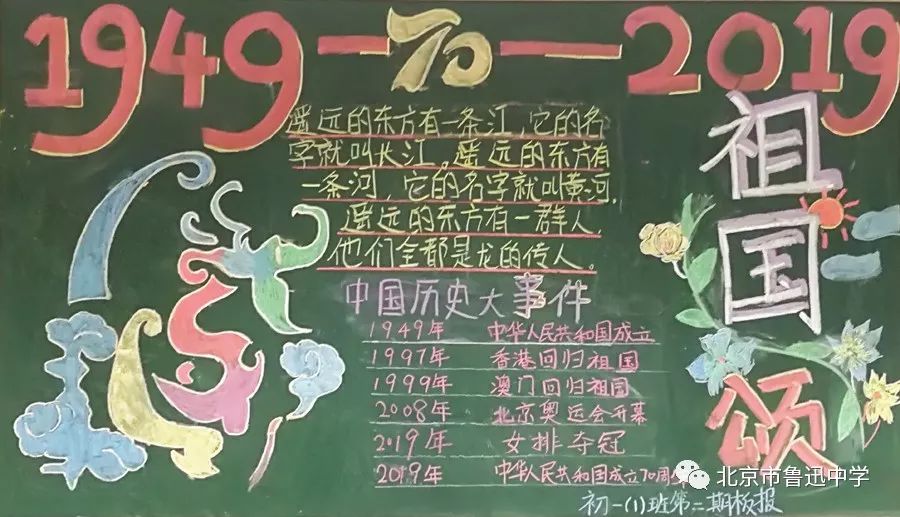 1949—70—2019
遥远的东方有一条江,它的名
字就叫长江。遥远的东方有
一条河,它的名字就叫黄河.
遥远的东方有一群人,
他们全都是龙的传人。
中国历史大事件
1949年 中华人民共和国成立
1997年 香港回归祖国
1999年 澳门回归祖国
2008年 北京奥运会开幕
2019年 女排夺冠
2019年 中华人民共和国成立70周
祖国颂
北京市鲁迅中学
初一(1)班第二期板报